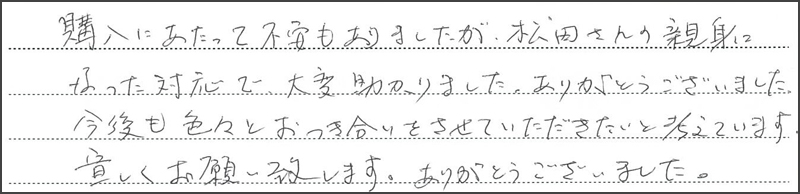 購入にあたって不安もありましたが、松田さんの親身に
なった対応で、大変助かりました。ありがとうございました。
今後も色々とおつき合いをさせていただきたいと考えています。
宜しくお願い致します。ありがとうございました。